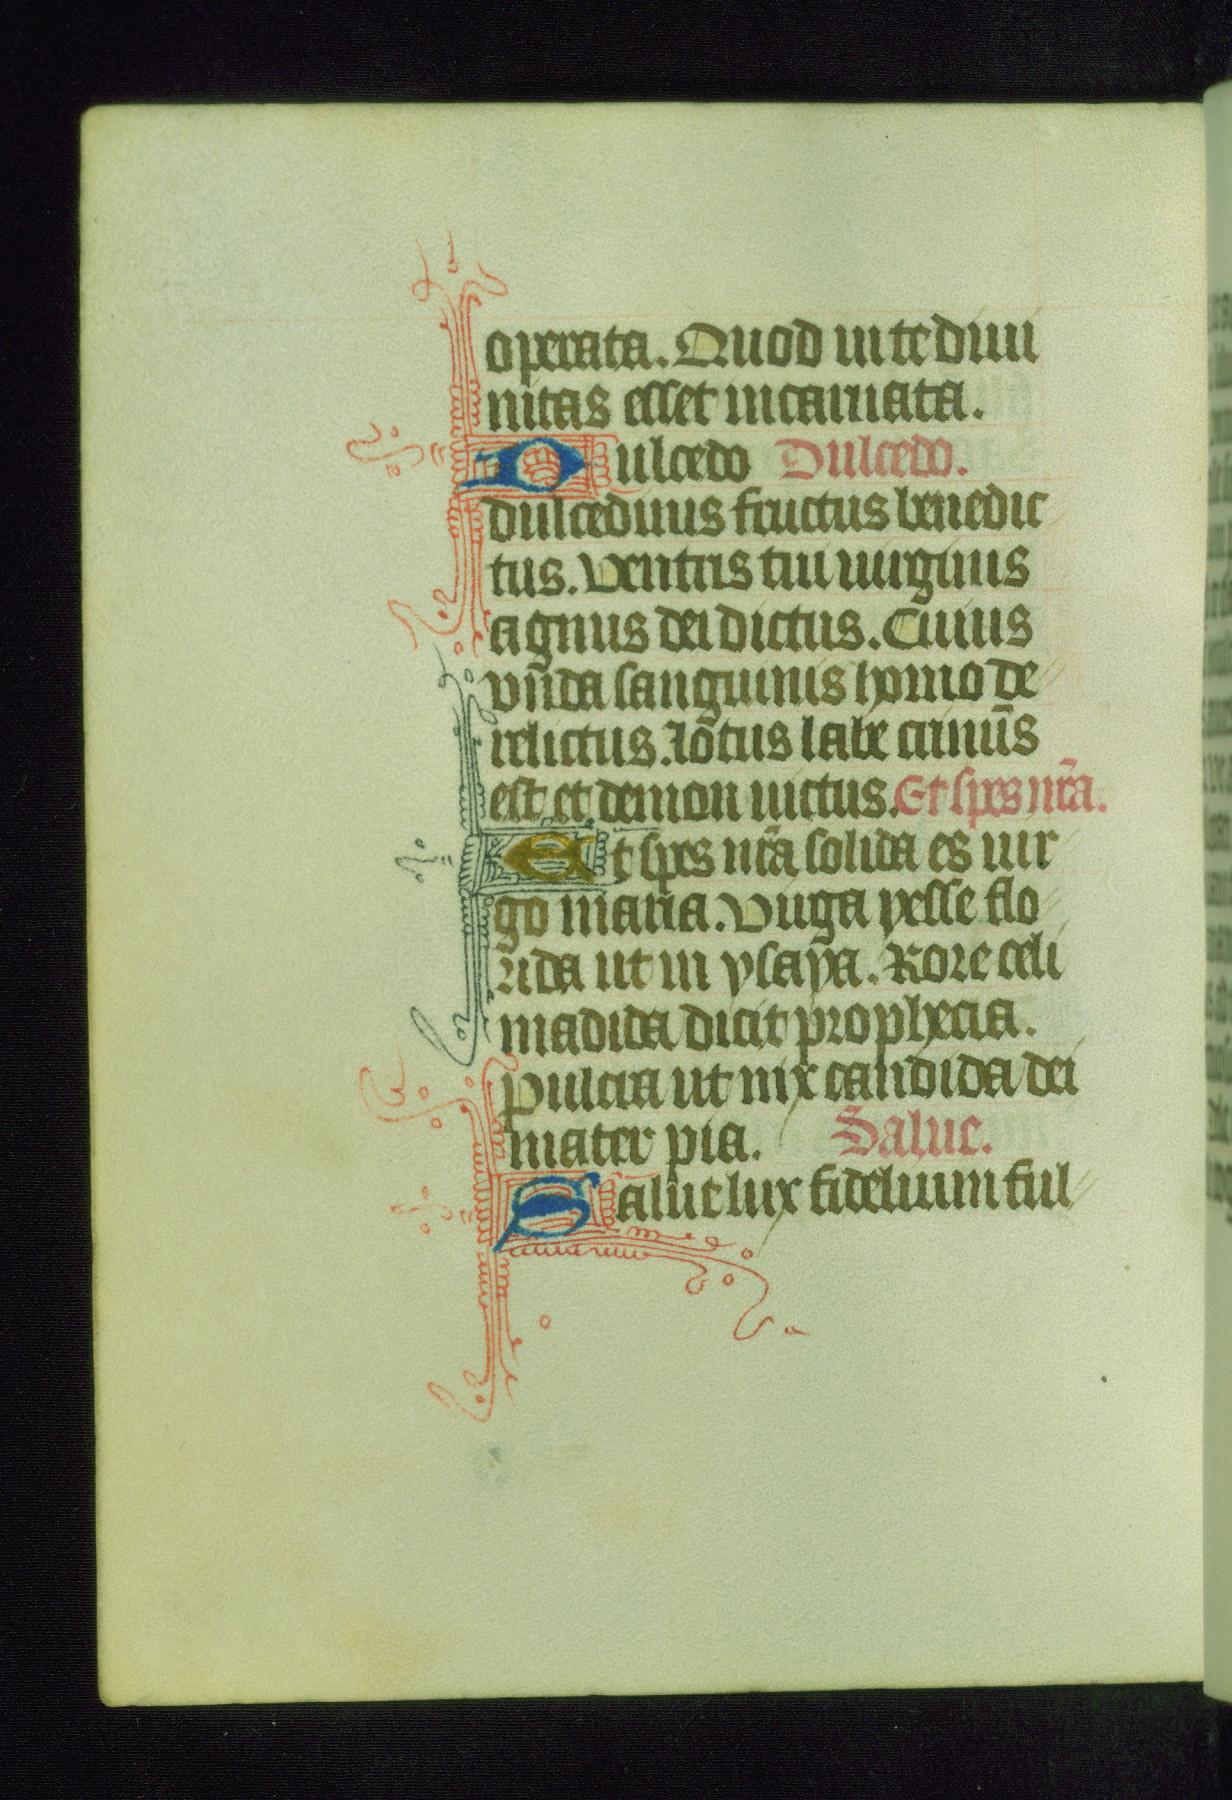 operata. Quod in te diui
nitas esset incarnata.
Dulcedo Dulcedo.
dulcedinis fructus benedic
tus. Ventris tui uirginis
agnus dei dictus. Cuius
vn̄da sanguinis homo de
relictus. lōtus labe crimīs
est et demon uictus. Et spes nr̄a.
Et spes nr̄a solida es uir
go maria. Virga yesse flo
rida ut in ysaya. Rore celi
madida dicit prophecia.
Pulcra ut nix candida dei
mater pia. Salue.
Salue lux fidelium ful